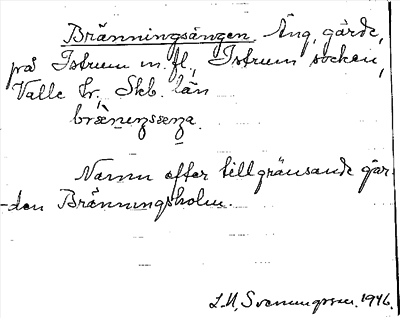 Bränningsängen. Äng, gärde,
på Istrum m. fl., Istrum socken,
Valle hr, Skb. län
Namn efter tillgränsande går-
den Bränningsholm.
L. M. Svenungsson. 1946.